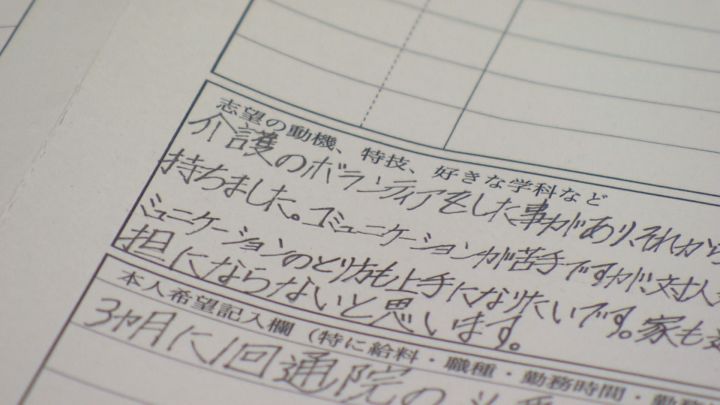 志望の動機、特技、好きな学科など
介護のボランティアをした事があり、それから
持ちました。コミュニケーションが苦手ですが、対人
ミュニケーションのとり方も上手になりたいです。家も
担にならないと思います。
本人希望記入欄（特に給料・職種・勤務時間・勤務
3ヶ月に1回通院の